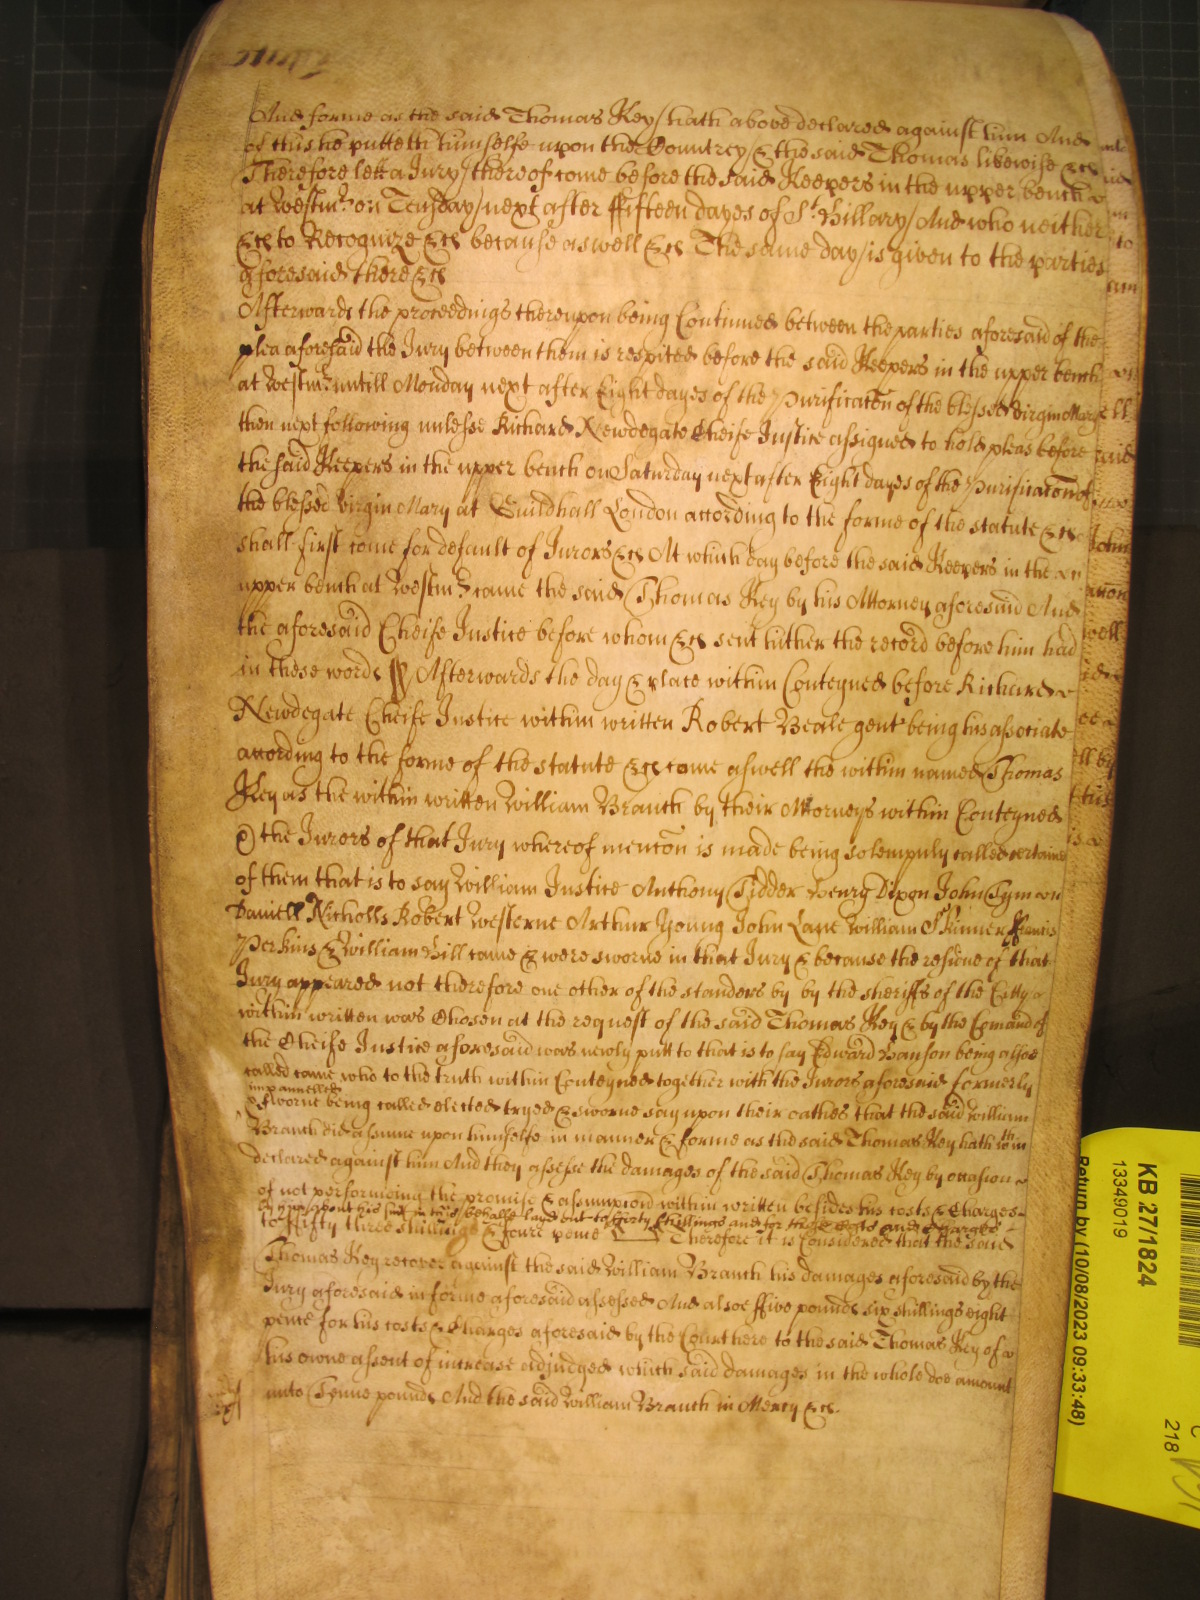 And forme as the said Thomas Key hath above declared against him And
of this he putteth himselfe upon the Countrey & the said Thomas likewise &c
Therefore lett a Jury thereof come before the said Keepers in the upper bench
at Westmr on Tuesday next after ffifteen dayes of St Hillary And who neither
&c to Recognize &c because aswell &c The same day is given to the parties
aforesaid there &c
Afterwards the proceedings thereupon being Continued between the parties aforesaid of the
plea aforesaid the Jury between them is respited before the said Keepers in the upper bench
at Westmr untill Monday next after Eight dayes of the Purificacon of the blessed virgin Mary
then next following unlesse Richard Newdegate Cheife Justice assigned to hold pleas before
the said Keepers in the upper bench on Saturday next after Eight dayes of the Purificacon of
the blessed virgin Mary at Guildhall London according to the forme of the statute &c
shall first come for default of Jurors &c At which day before the said Keepers in the
upper bench at Westmr came the said Thomas Key by his Attorney aforesaid And
the aforesaid Cheife Justice before whom &c sent hither the record before him had
in these words Afterwards the day & place within Conteyned before Richard
Newdegate Cheife Justice within written Robert Beale gent being his associate
according to the forme of the statute &c come aswell the within named Thomas
Key as the within written William Branch by their Attorneys within Conteyned
& the Jurors of that Jury whereof mencon is made being solempnly called certaine
of them that is to say William Justice Anthony Tidder Henry Dixon John Symcon
Daniell Nicholls Robert Westerne Arthur Young John Lane William Skinner ffrancis
Perkins & William Hill came & were sworne in that Jury & because the residue of that
Jury appeared not therefore one other of the standers by by the sheriffs of the Citty
within written was Chosen at the request of the said Thomas Key & by the Comand of
the Cheife Justice aforesaid was newly putt to that is to say Edward Hanson being alsoe
called came who to the truth within Conteyned together with the Jurors aforesaid formerly
impannelled
& sworne being called elected tryed & sworne say upon their oathes that the said William
Branch did assume upon himselfe in manner & forme as the said Thomas Key hath within
declared against him And they assesse the damages of the said Thomas Key by occasion
of not performing the promise & assumpcion within written besides his costs & Charges
by him about his suit in this behalfe layd out to forty shillings and for those costs and charges
to ffifty three shillings & foure pence Therefore it is Considered that the said
Thomas Key recover against the said William Branch his damages aforesaid by the
Jury aforesaid in forme aforesaid assessed And alsoe ffive pounds six shillings eight
pence for his costs & Charges aforesaid by the Court here to the said Thomas Key of
his owne assent of increase adjudged which said damages in the whole doe amount
unto Tenne pounds And the said William Branch in Mercy &c.
KB 27/1824
13349019
Return by (10/08/2023 09:33:48)
218